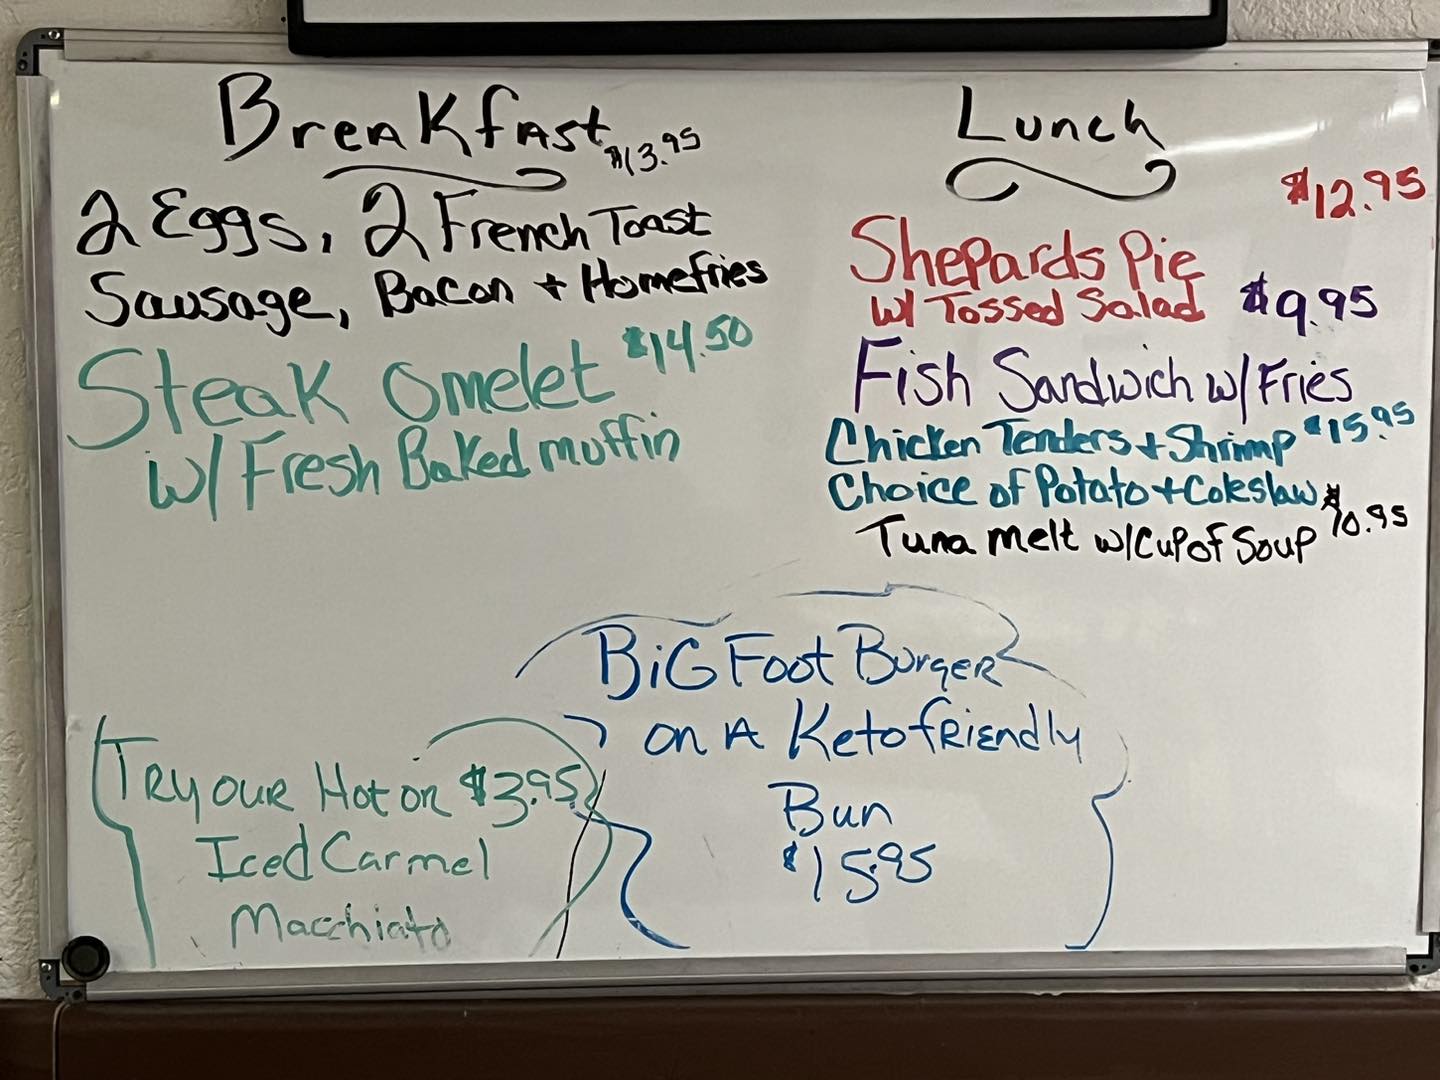 Breakfast $13.95
2 Eggs, 2 French Toast
Sausage, Bacon + Homefries
Steak omelet $14.50
w/ Fresh Baked muffin
Lunch
$12.95
Shepards Pie
w/ Tossed Salad
$9.95
Fish Sandwich w/ Fries
Chicken Tenders + Shrimp $15.95
Choice of Potato + Coleslaw
Tuna melt w/ Cup of Soup $10.95
BiG Foot Burger
on A Ketofriendly
Bun
$15.95
Try our Hot or $3.95
Iced Carmel
Macchiato